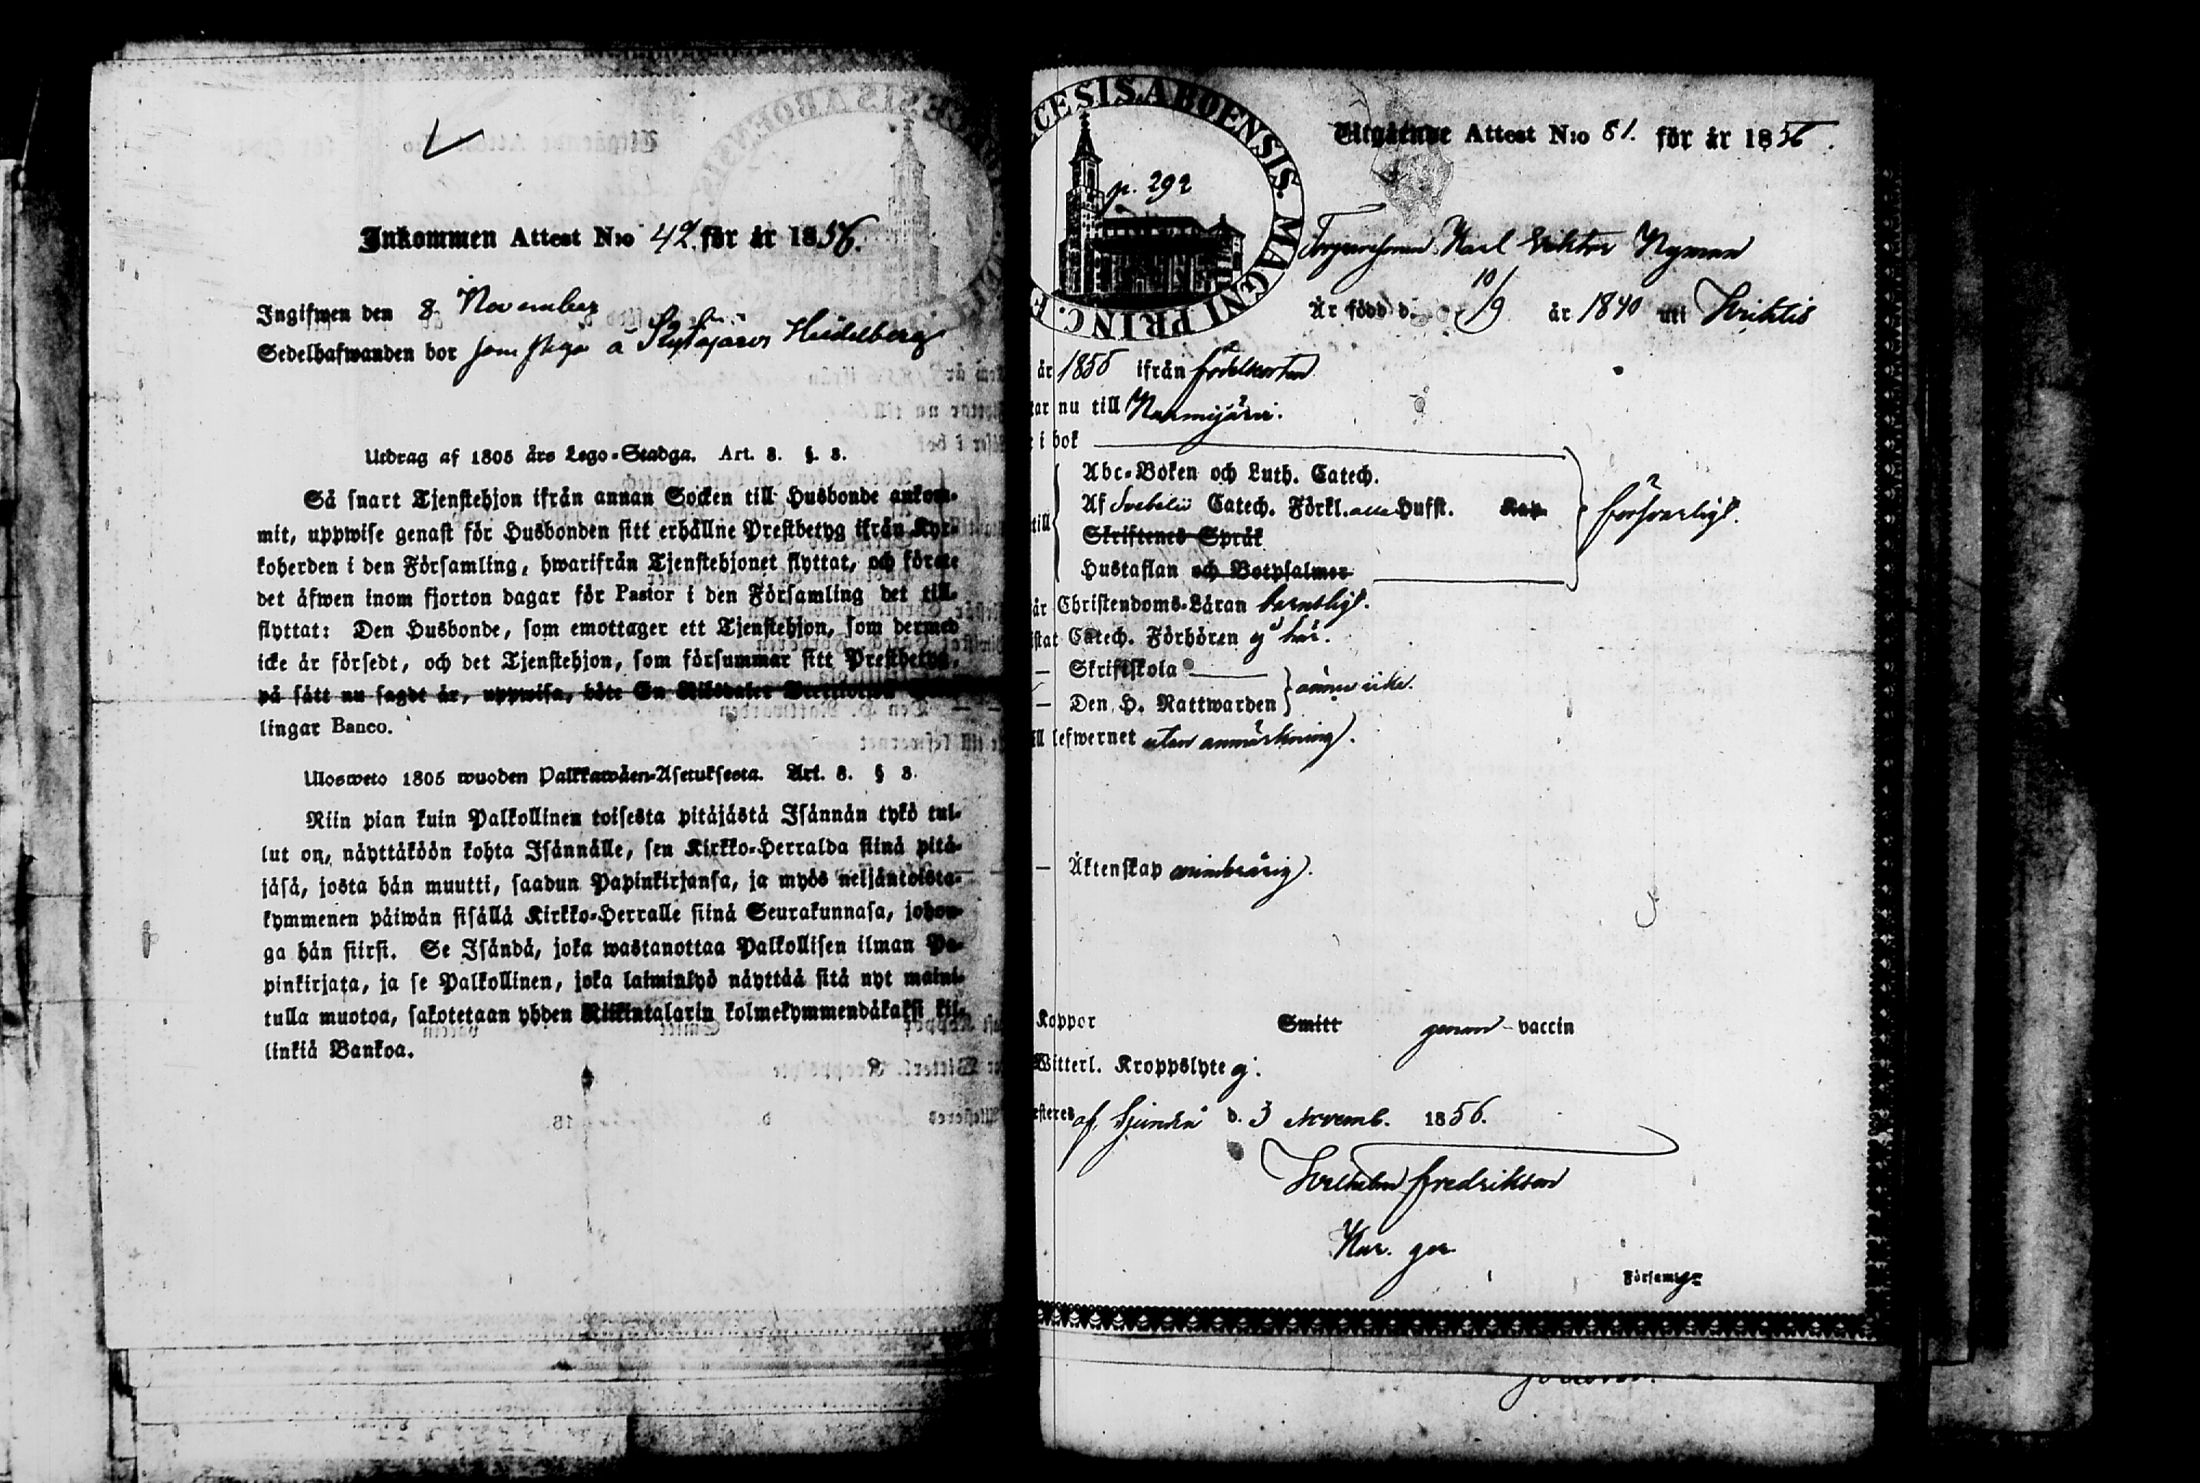 Inkommen Attest N:o 42. för år 1856.
Ingifwen den 8 November
Sedelhafwanden bor som piga å Heidelberg
Utdrag af 1805 års Lego-Stadga. Art. 8. §. 3.
Så snart Tjenstehjon ifrån annan Socken till Husbonde ankom-
mit, uppwise genast för Husbonden sitt erhållne Prestbetyg ifrån Kyr-
koherden i den Församling, hwarifrån Tjenstehjonet flyttat, och förete
det äfwen inom fjorton dagar för Pastor i den Församling det till-
flyttat: Den Husbonde, som emottager ett Tjenstehjon, som dermed
icke är försedt, och det Tjenstehjon, som försummar sitt Prestbetyg,
på sätt nu sagdt är, uppwisa, böte En Riksdaler
lingar Banco.
Ulosweto 1805 wuoden Palkkawäen-Asetuksesta. Art. 8. § 3.
Niin pian kuin Palkollinen toisesta pitäjästä Isännän tykö tul-
lut on, näyttäköön kohta Isännälle, sen Kirkko-Herralda siinä pitä-
jäsä, josta hän muutti, saadun Papinkirjansa, ja myös neljäntoista-
kymmenen päiwän sisällä Kirkko-Herralle siinä Seurakunnasa, johon-
ga hän siirsi. Se Isändä, joka wastanottaa Palkollisen ilman Pa-
pinkirjata, ja se Palkollinen, joka laiminlyö näyttää sitä nyt maini-
tulla muotoa, sakotetaan yhden Riikintalarin kolmekymmendäkaksi kil-
linkiä Bankoa.
CESIS. ABOENSIS. MAGNI PRINC. F
p. 292
Utgående Attest N:o 81. för år 1856.
Karl Viktor Nyman
Är född d. 10/9 år 1840 uti Wichtis
år 1855 ifrån födelseorten
tar nu till Nurmijärvi.
e i bok
Abc-Boken och Luth. Catech.
Af Svebelii Catech. Förkl. Husst. Kap.
till Skriftenes Språk
försvarligt.
Hustaflan och Botpsalmer
är Christendoms-Läran barnsligt.
istat Catech. Förhören ej här.
— Skriftskola
— Den H. Nattwarden ännu icke.
ll lefwernet utan anmärkning.
— Äktenskap minderårig.
Koppor Smitt genom vaccin
Witterl. Kroppslyte ej.
esteres af Sjundeå d. 3 Novemb. 1856.
Wilhelm Fredrikson
Församlg: